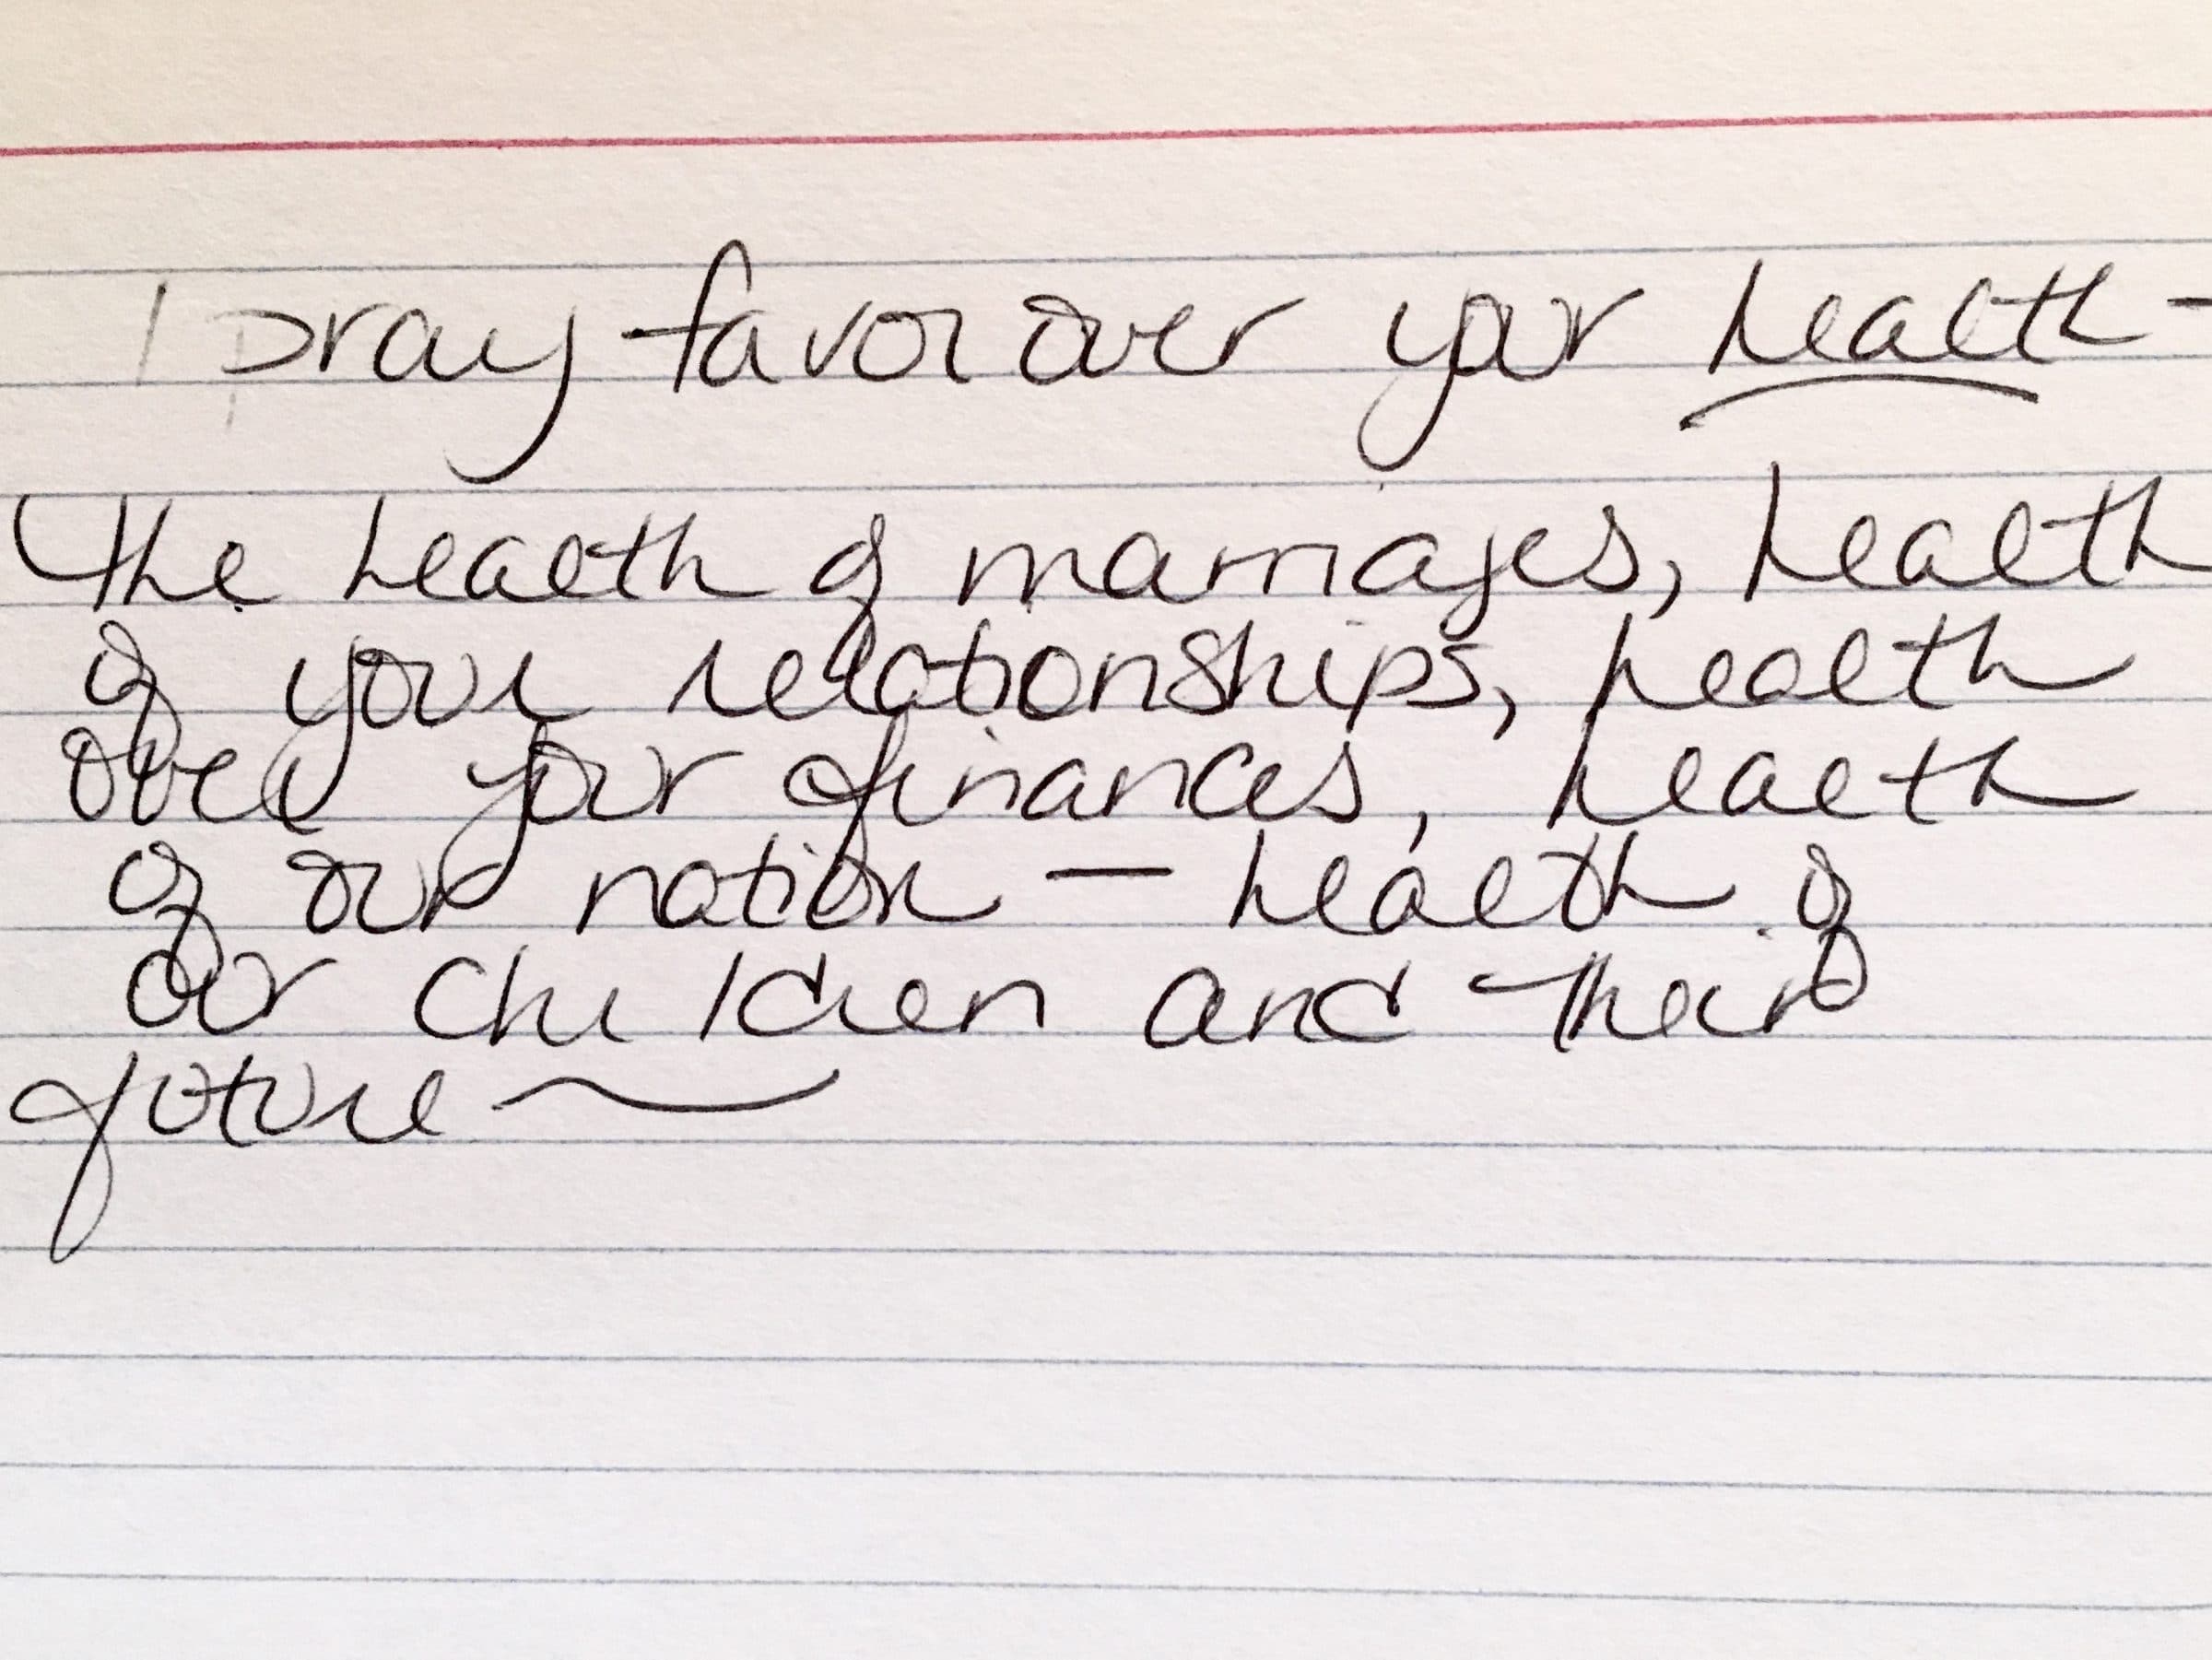 I pray favor over your health -
The health of marriages, health
of your relationships, health
over your finances, health
of our nation — health of
our children and their
future ~